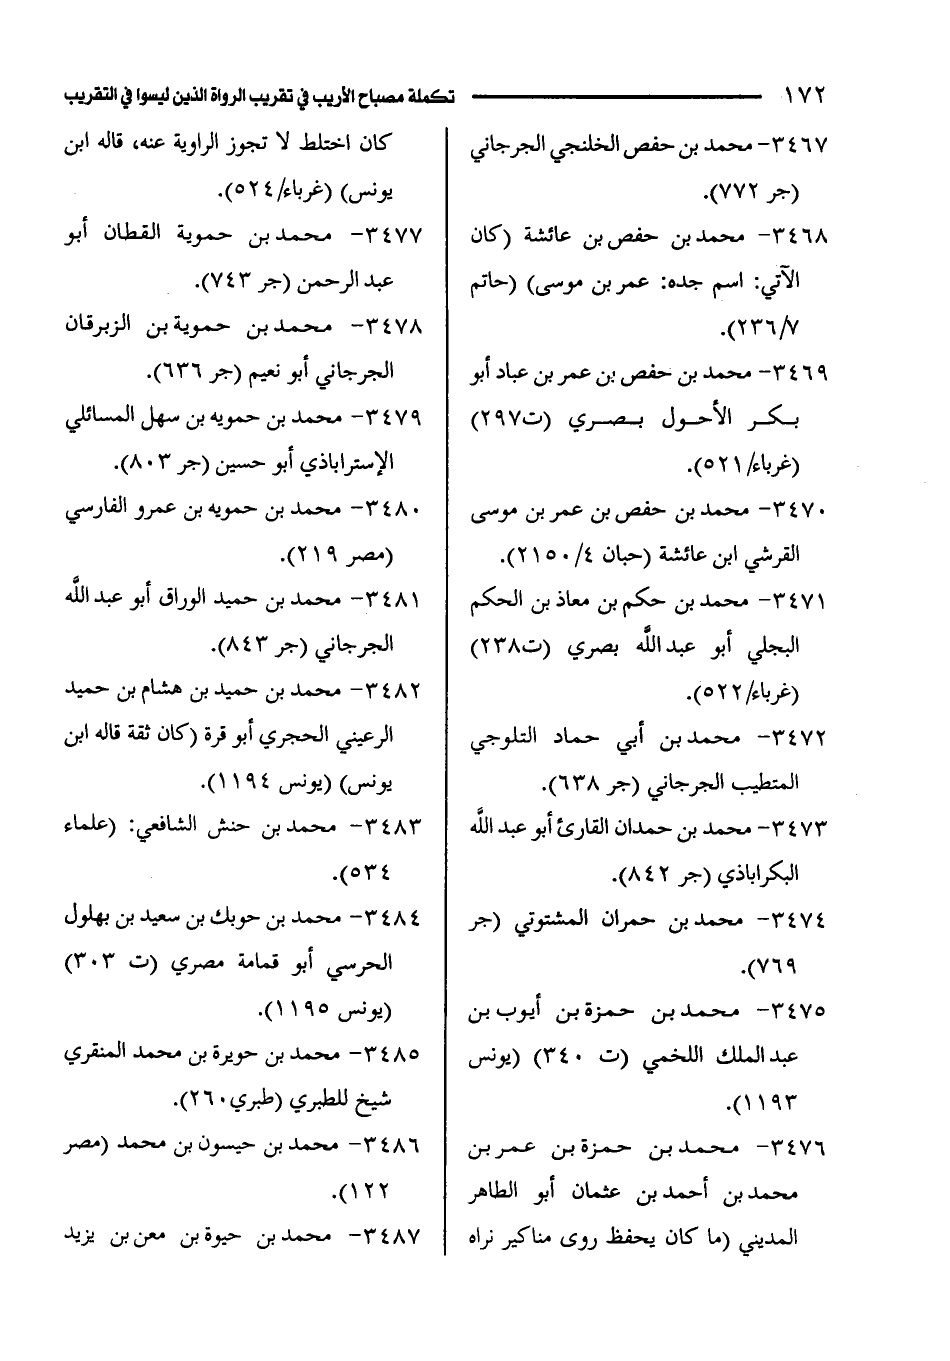 ١٧٢ تكملة مصباح الأريب في تقريب الرواة الذين ليسوا في التقريب
٣٤٦٧- محمد بن حفص الخلنجي الجرجاني
(جر ٧٧٢).
٣٤٦٨- محمد بن حفص بن عائشة (كان
الآتي: اسم جده: عمر بن موسى) (حاتم
٢٣٦/٧).
٣٤٦٩- محمد بن حفص بن عمر بن عباد أبو
بكر الأحول بصري (ت٢٩٧)
(غرباء/٥٢١).
٣٤٧٠- محمد بن حفص بن عمر بن موسى
القرشي ابن عائشة (حبان ٢١٥٠/٤).
٣٤٧١- محمد بن حكم بن معاذ بن الحكم
البجلي أبو عبد الله بصري (ت٢٣٨)
(غرباء/٥٢٢).
٣٤٧٢- محمد بن أبي حماد التلوجي
المتطيب الجرجاني (جر ٦٣٨).
٣٤٧٣- محمد بن حمدان القارئ أبو عبد الله
البكراباذي (جر ٨٤٢).
٣٤٧٤- محمد بن حمران المشتوتي (جر
٧٦٩).
٣٤٧٥- محمد بن حمزة بن أيوب بن
عبد الملك اللخمي (ت ٣٤٠) (يونس
١١٩٣).
٣٤٧٦- محمد بن حمزة بن عمر بن
محمد بن أحمد بن عثمان أبو الطاهر
المديني (ما كان يحفظ روى مناكير نراه
كان اختلط لا تجوز الراوية عنه، قاله ابن
يونس) (غرباء/٥٢٤).
٣٤٧٧- محمد بن حموية القطان أبو
عبد الرحمن (جر ٧٤٣).
٣٤٧٨- محمد بن حموية بن الزبرقان
الجرجاني أبو نعيم (جر ٦٣٦).
٣٤٧٩- محمد بن حمويه بن سهل المسائلي
الإستراباذي أبو حسين (جر ٨٠٣).
٣٤٨٠- محمد بن حمويه بن عمرو الفارسي
(مصر ٢١٩).
٣٤٨١- محمد بن حميد الوراق أبو عبد الله
الجرجاني (جر ٨٤٣).
٣٤٨٢- محمد بن حميد بن هشام بن حميد
الرعيني الحجري أبو قرة (كان ثقة قاله ابن
يونس) (يونس ١١٩٤).
٣٤٨٣- محمد بن حنش الشافعي: (علماء
٥٣٤).
٣٤٨٤- محمد بن حوبك بن سعيد بن بهلول
الحرسي أبو قمامة مصري (ت ٣٠٣)
(يونس ١١٩٥).
٣٤٨٥- محمد بن حويرة بن محمد المنقري
شيخ للطبري (طبري٢٦٠).
٣٤٨٦- محمد بن حيسون بن محمد (مصر
١٢٢).
٣٤٨٧- محمد بن حيوة بن معن بن يزيد